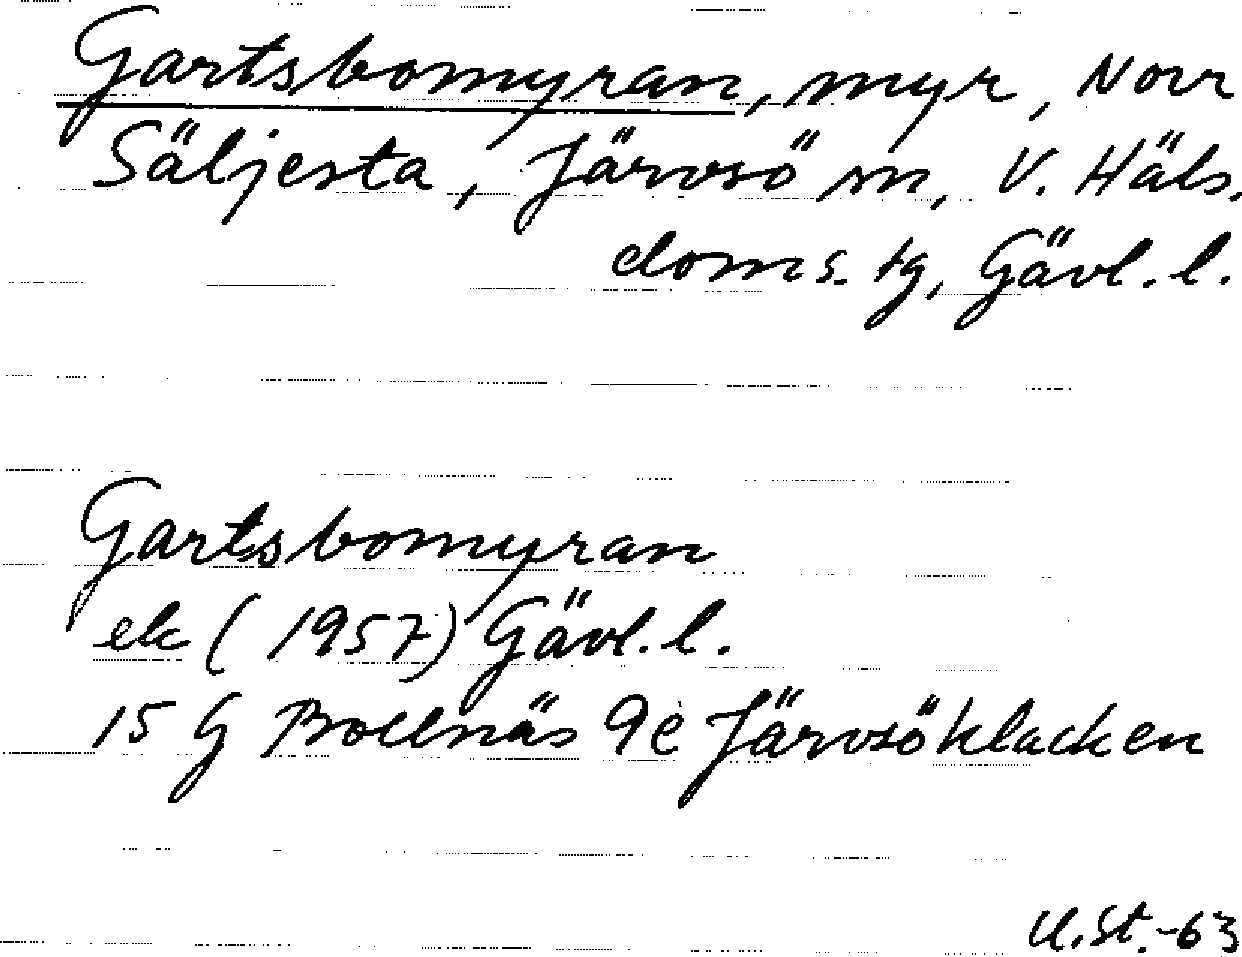 Gartsbomyran, myr, Norr
Säljesta, Järvsö sn, V. Häls.
doms. tg, Gävl. l.
Gartsbomyran
ek (1957) Gävl. l.
15 G Bollnäs 9e Järvsöklacken
U. St. -63